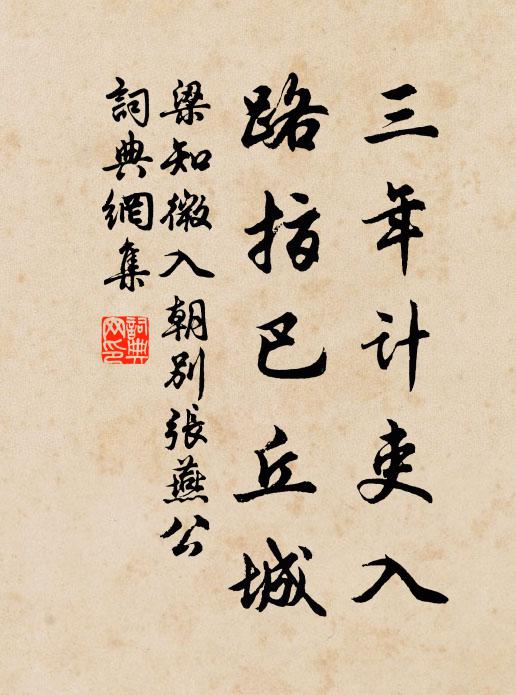 三年計吏入
路指巴丘城
梁知微入朝別張燕公
詞典網集
詞典
网印